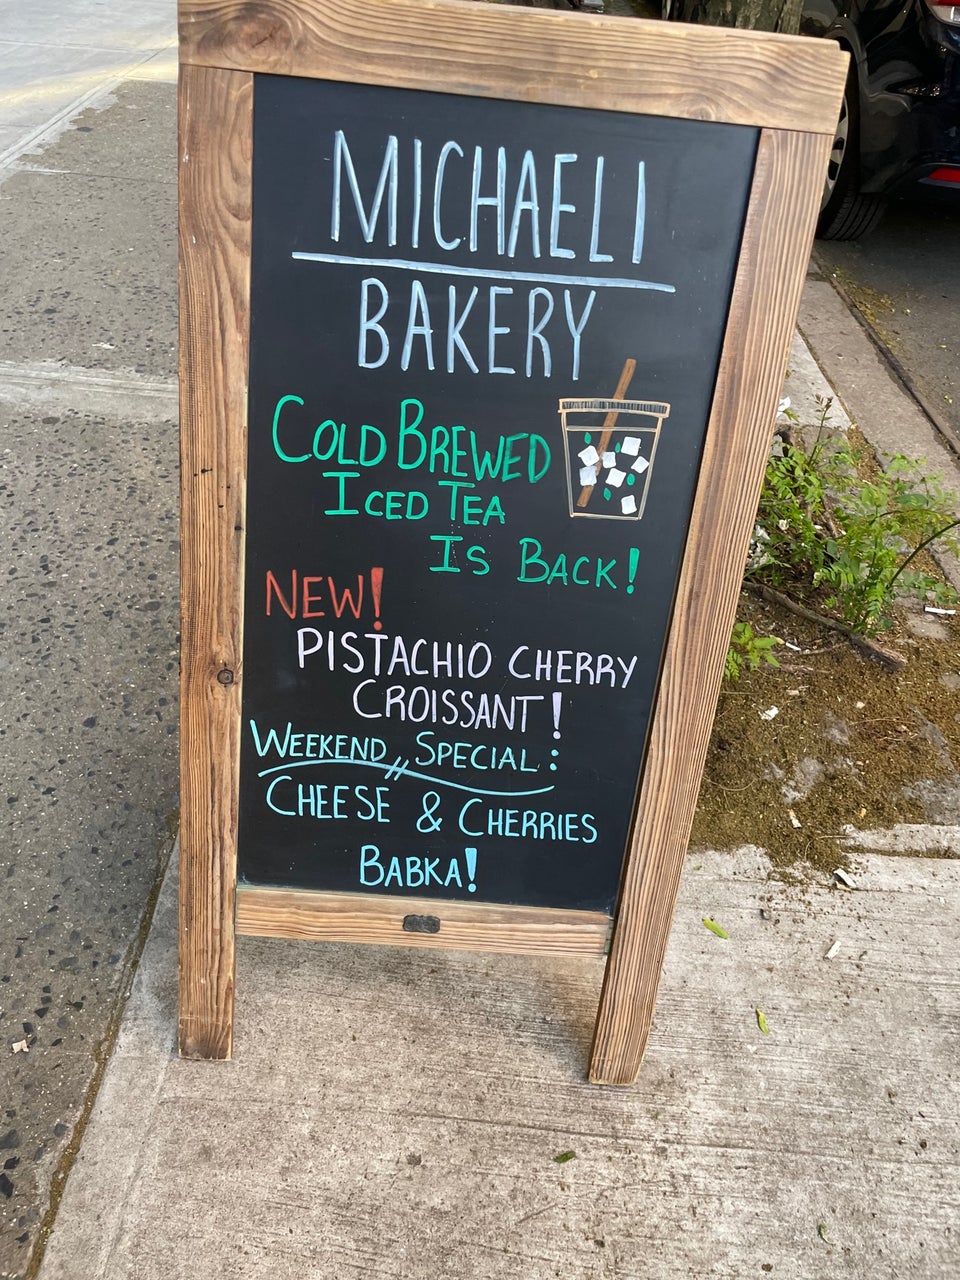 MICHAELI
BAKERY
COLD BREWED
ICED TEA
IS BACK!
NEW!
PISTACHIO CHERRY
CROISSANT!
WEEKEND SPECIAL:
CHEESE & CHERRIES
BABKA!